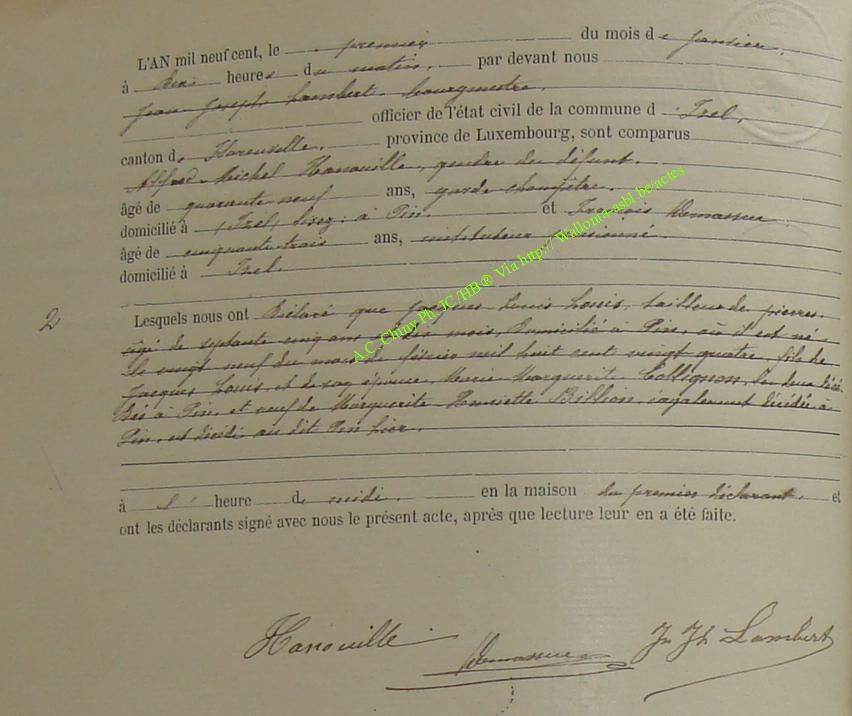 L'AN mil neuf cent, le premier du mois de janvier,
à dix heures du matin, par devant nous
Jean Joseph Lambert, bourgmestre,
officier de l'état civil de la commune d'Izel,
canton de Florenville, province de Luxembourg, sont comparus
Alfred Michel Hanouille, gendre du défunt,
âgé de quarante neuf ans, garde champêtre,
domicilié à (Izel) lisez: à Pin, et François Demasseur
âgé de cinquante trois ans, instituteur pensionné
domicilié à Izel.
A.C. Chiny Ph. JC/HB® Via http://Wallonia-asbl.be/actes
2
Lesquels nous ont déclaré que Jacques Louis Louis, tailleur de pierres,
âgé de septante cinq ans mois, domicilié à Pin, où il est né
le vingt neuf du mois de février mil huit cent vingt quatre, fils de
Jacques Louis, et de son épouse, Marie Marguerite Collignon, les deux décé
dés à Pin, et veuf de Marguerite Henriette Billion, également décédée à
Pin, est décédé au dit Pin hier,
à heure de midi, en la maison du premier déclarant, et
ont les déclarants signé avec nous le présent acte, après que lecture leur en a été faite.
Hanouille Demasseur Jn Jh Lambert